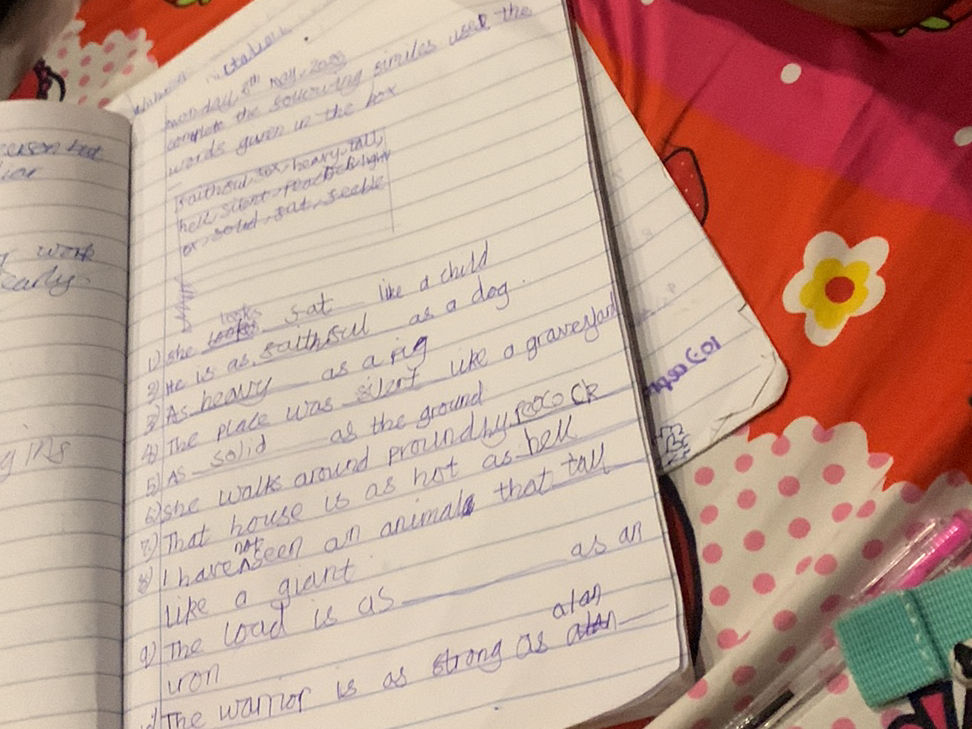 Monday, 8th May, 2023
complete the following similes used the
words given in the box
faithful, ox, heavy, tall,
hell, silent, peacock, light
or, solid, sat, feeble
1) She looks sat like a child
2) He is as faithful as a dog.
3) As heavy as a pig
4) The place was silent like a graveyard
5) As solid as the ground
6) She walks around proundly pocock
7) That house is as hot as hell
8) I have not seen an animal that tall
like a giant
9) The load is as ______ as an
iron
The warrior is as strong as atan
person but
work
early.
g ins